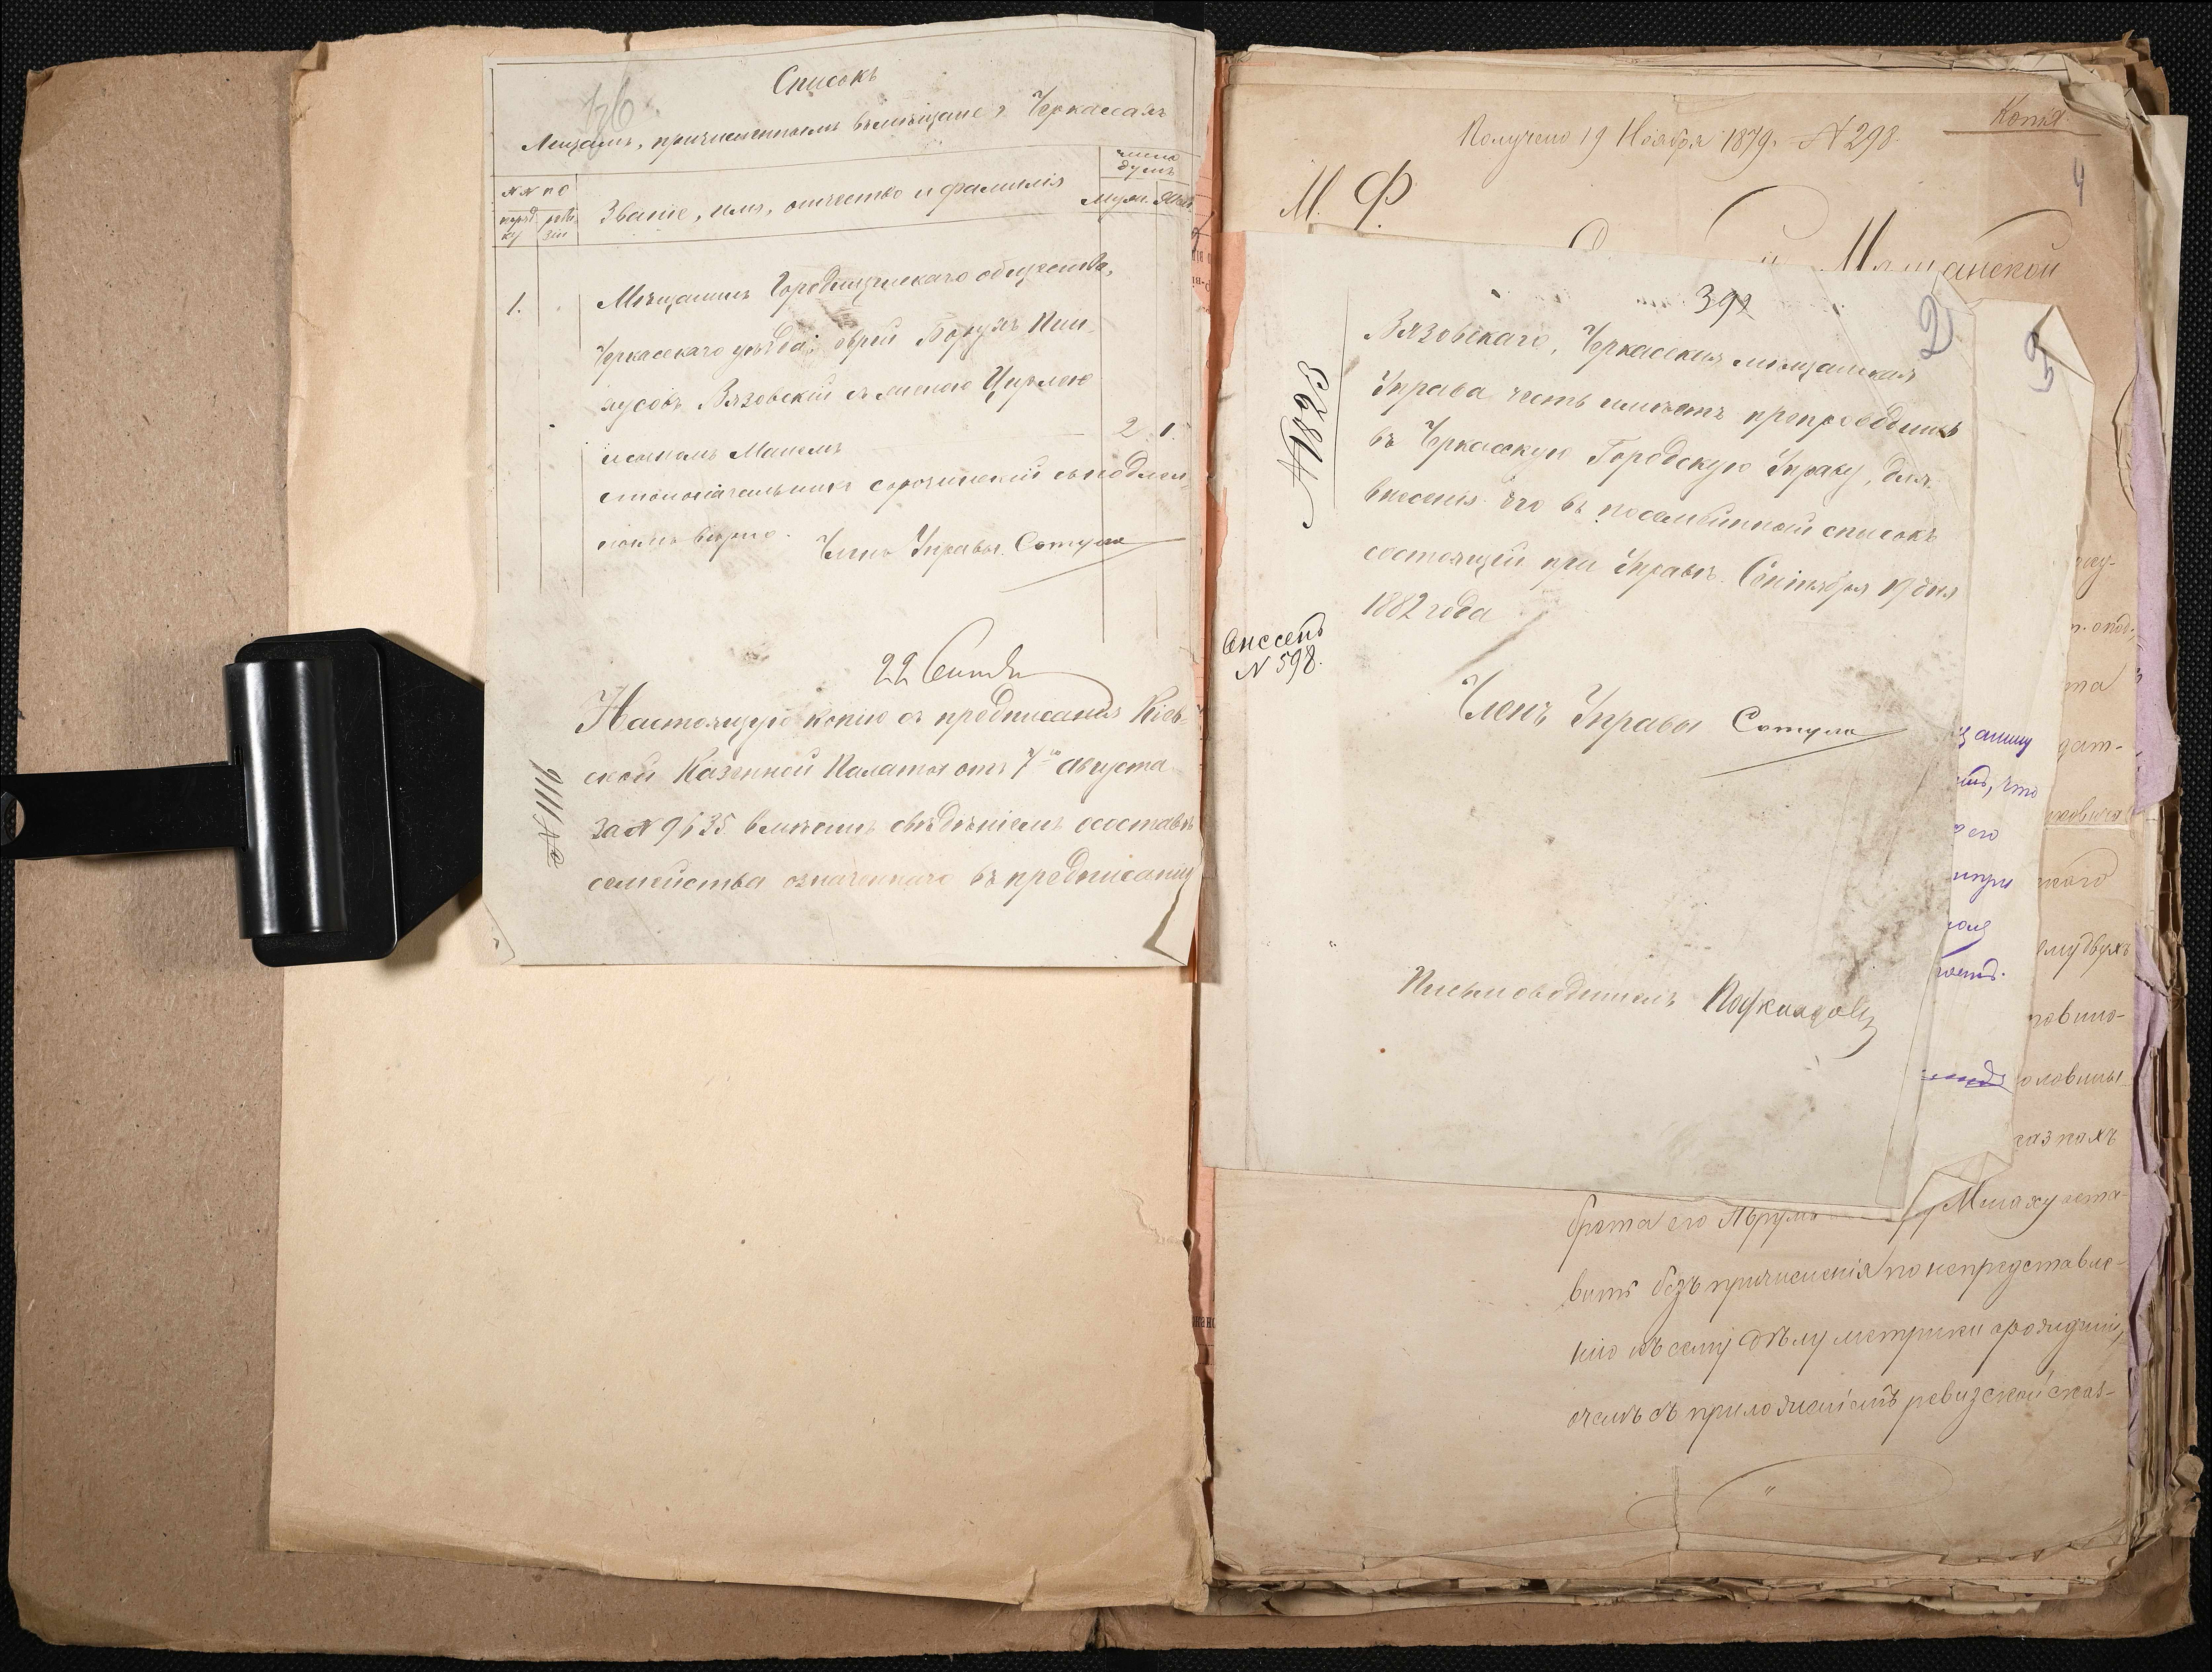 Списокъ
136
Лицамъ, причисленнымъ въ мѣщане г. Черкассахъ
№№ по
поряд ку
реви зіи
Званіе, имя, отчество и фамилія
число душъ
муж.
жен.
1.
Мѣщанинъ Городищенскаго общества,
Черкасскаго уѣзда, еврей Борухъ Пин-
хусовъ Вязовскій съ женою Цирлею
и сыномъ Манелъ
2
1.
столоначальникъ Сорочинскій съ подлин-
нымъ вѣрно.
Членъ Управы Сотула
22 Сентя
Настоящую копію съ предписанія Кіев-
ской Казенной Палаты отъ 7го августа
за № 9635 вмѣстѣ свѣдѣніемъ о составѣ
семейства означеннаго въ предписаніи
№ 1116
Получено 19 Ноября 1879 г. № 298
Копія
4
М. Ф.
Мѣщанской
392
2
3
Вязовскаго, Черкасская мѣщанская
Управа честь имѣетъ препроводить
въ Черкасскую Городскую Управу, для
внесенія его въ посемейный списокъ
состоящій при Управѣ. Сентября 19 дня
1882 года
№ 893
внесенъ
№ 598.
Членъ Управы Сотула
Письмоводитель
щанину
что
его
та
дат-
скаго
ему двухъ
казнахъ
брата его Абрума
Милаху оста-
вить безъ причисленія по непредставле-
нію къ сему дѣлу метрики о рожденіи,
о чемъ съ приложеніемъ ревизской сказ-